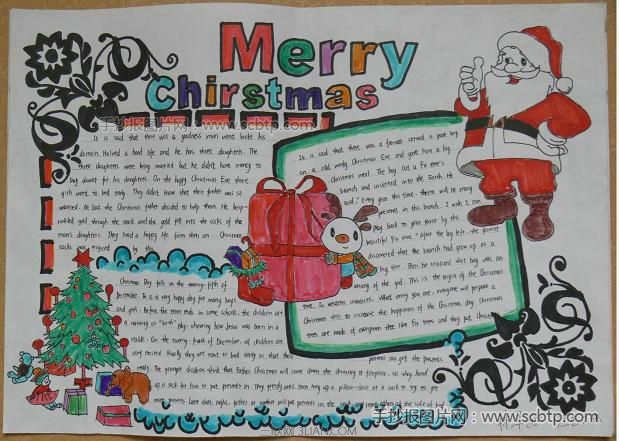 Merry
Chirstmas
手抄报图片网：www.scbtp.com
It is said that there was a goodness man went broke his
domain. He lived a hard life and he has three daughters. The
three daughters were being married but he didn't have money to
buy dower for his daughters. On the happy Christmas Eve three
girls went to bed early. They didn't know that their father was so
worried. At last the Christmas father decided to help them. He
gold through the and the gold fell into the socks of the
man's daughters. They lived a happy life from then on. Christmas
socks was by this
It is said that there was a farmer served a poor boy
on a cold windy Christmas Eve and gave him a big
Christmas meal. The boy cut a fir tree's
branch and inserted into the Earth. He
said, "Every year this time, there will be many
presents in this branch. I wish I can
pay back to your favor by this
beautiful fir one." After the boy left, the farmer
discovered that the branch had grew up as a
big tree. Then he realized that boy was an
of the god. This is the origin of the Christmas
tree. In western countries. What ever you are, everyone will prepare a
Christmas tree to increase the happiness of the Christmas day. Christmas
trees are made of evergreen tree like fir trees and they put
Christmas Day falls on the twenty-fifth of
December. It is a very happy day for many boys
and girls. Before the term ends in some schools, the children act
a nativity or "birth" play, showing how Jesus was born in a
stable. On the twenty-fourth of December all children are
very excited. Usually they are sent to bed early so that their
parents can get the presents
ready. The younger children think that Father Christmas will come down the chimney or fireplace, so they hang
up a sock for him to put presents in. The greedy ones even hang up a pillow-case or a sack to try to get
more presents. Later that night, father or mother will put presents in the sock, and leave others at the side of bed
三联网 3LIAN.COM
手抄报图片网：www.scbtp.com